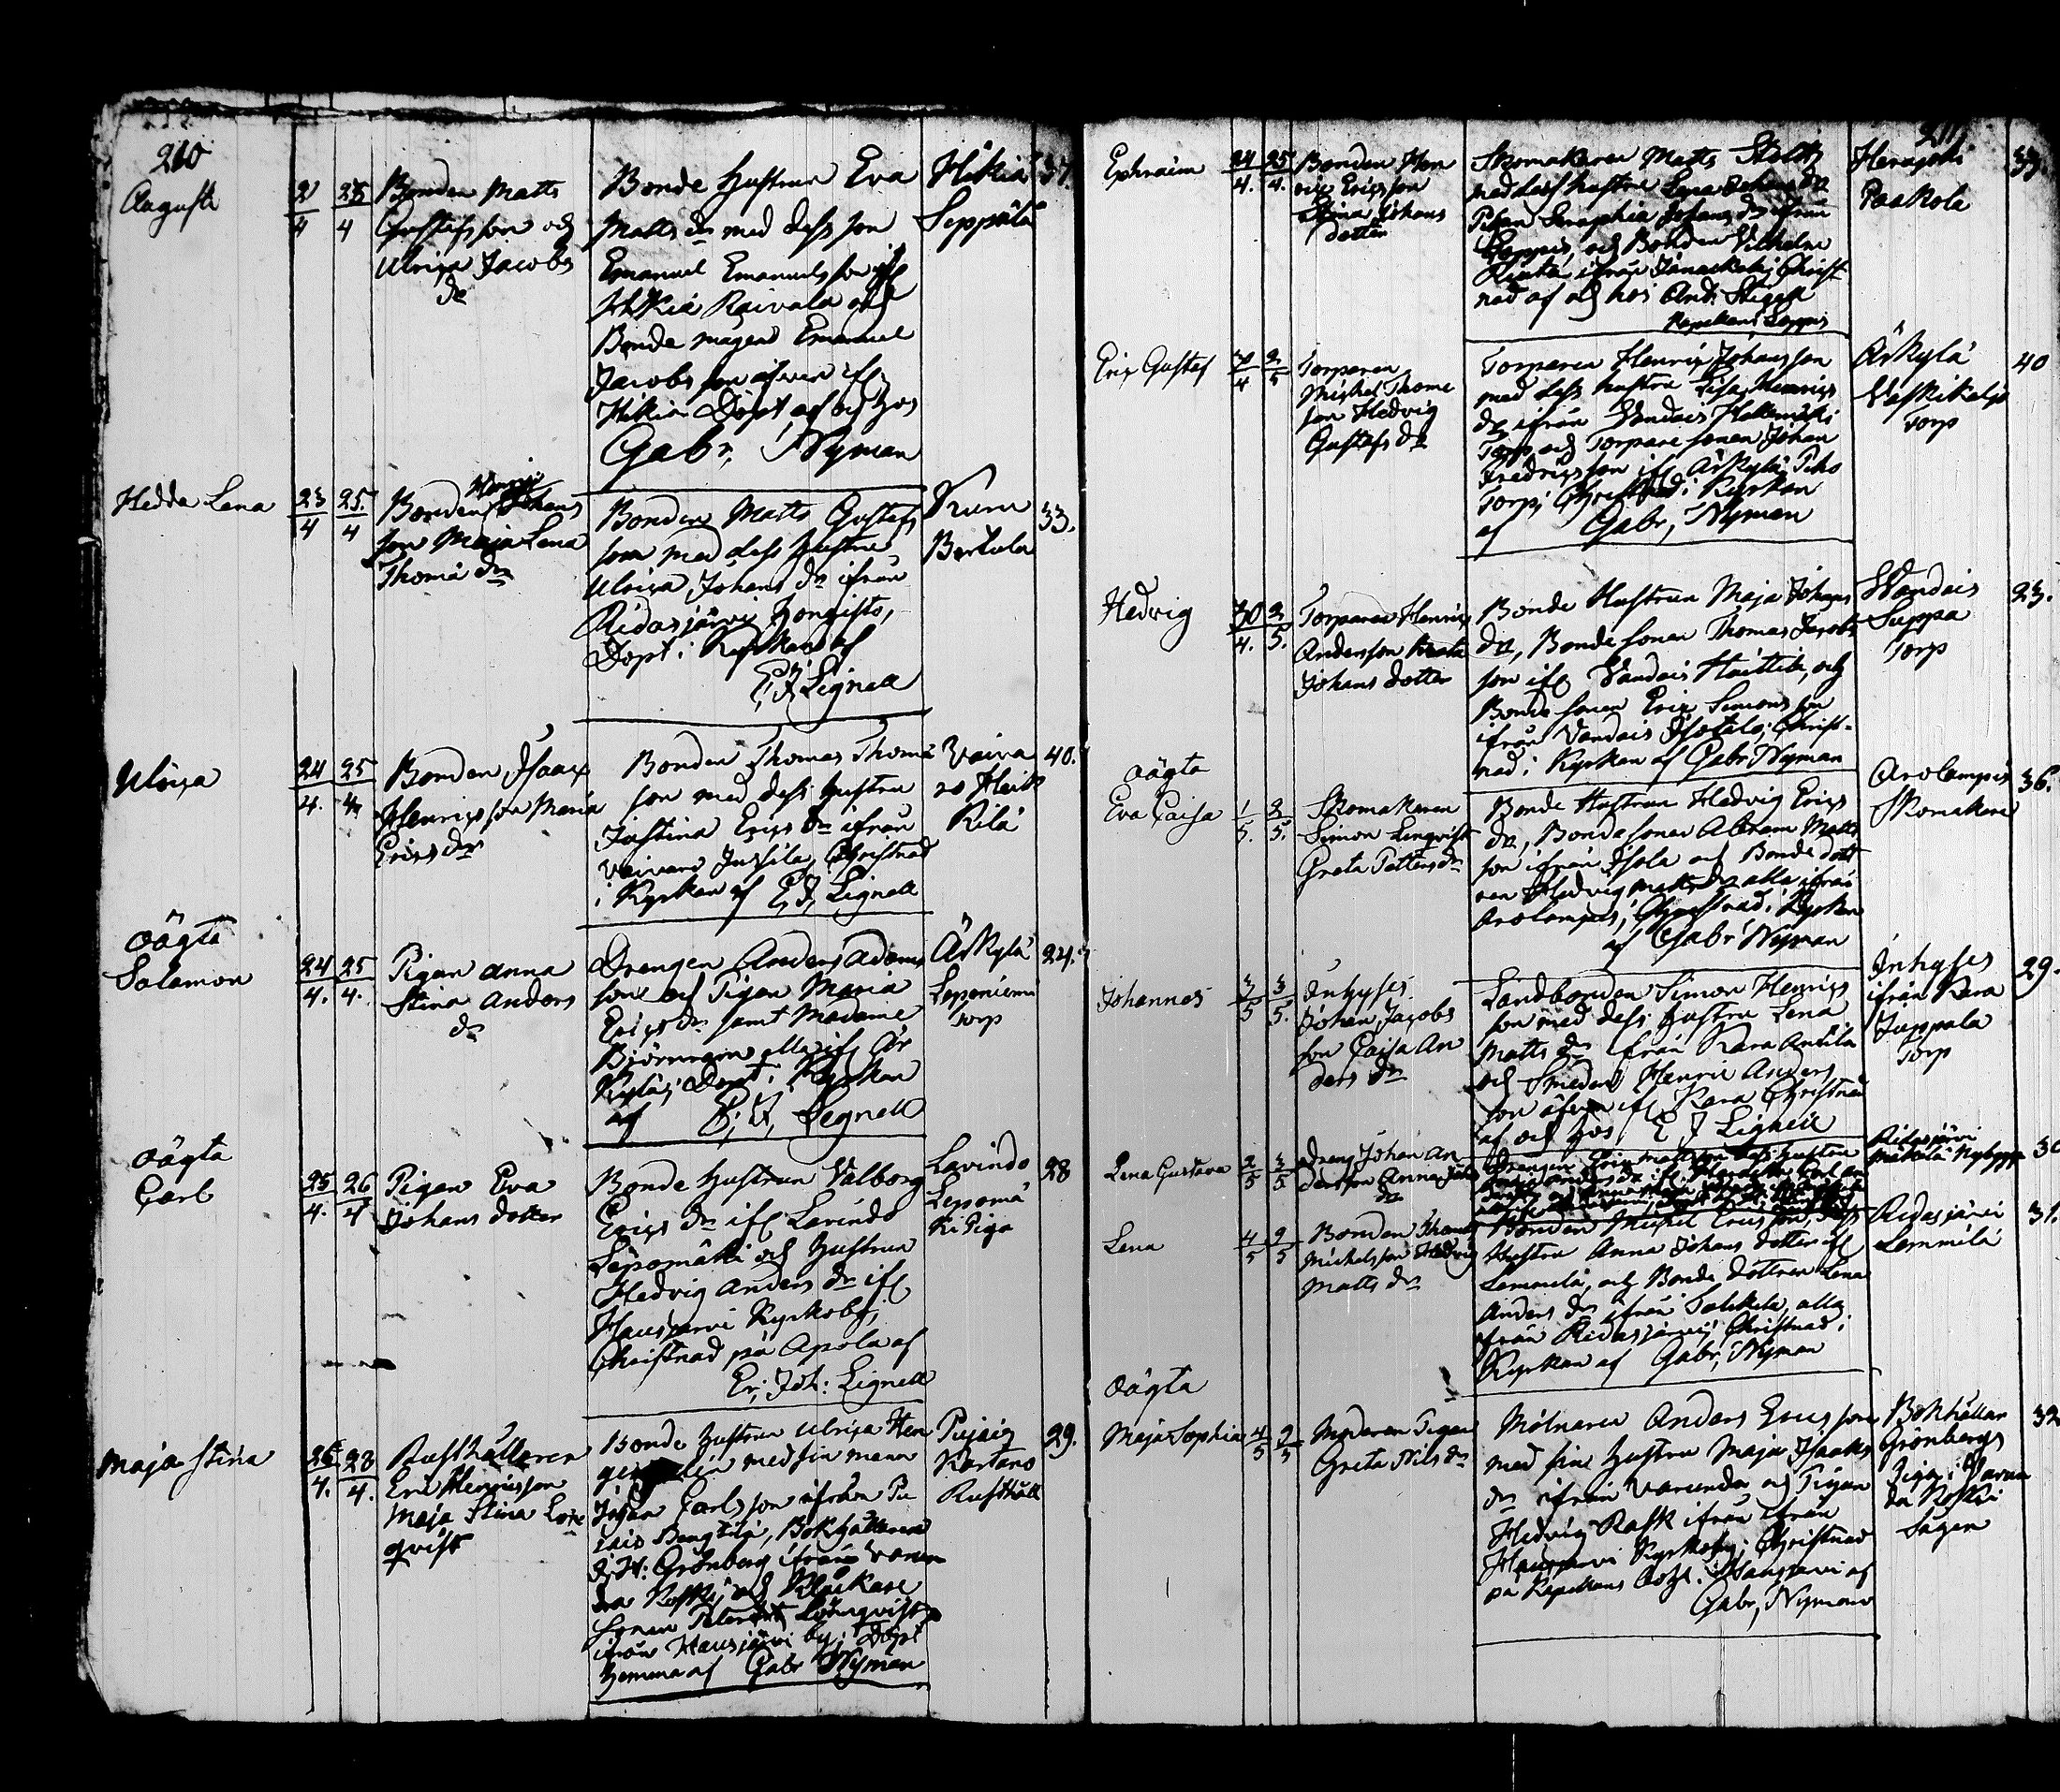 210
August
2/4
25/4
Bonden Matts
Gustafsson och
Ulrica Jacobs
dr
Bonde Hustrun Eva
Matts dr med dess son
Emanuel Emanuelsson ifr
Hikiä Raivala och
Bonde mågen Emanuel
Jacobs son äfven ifr
Hikiä Döpt af och hos
Gabr, Nyman
Hikiä
Seppälä
37.
Hedda Lena
23/4
25/4
Bonden Johans
son Maja Lena
Thomä dr
Bonden Matts Gustafs
son med dess hustru
Ulrica Johans dr ifrån
Ridasjärvi Hongisto,
Döpt i Kyrkan af
E, J Lignell
Kuru
Bertula
33.
Ulrica
24/4.
25/4
Bonden Isaac
Henrics son Maria
Erics dr
Bonden Thomas Thomä
son med dess hustru
Justina Erics dr ifrån
Vaivaro Jussila, Christnad
i Kyrkan af E, J, Lignell
Vaiva
ro Heik
Kilä
40.
oägta
Salamon
24/4.
25/4.
Pigan Anna
Stina Anders
dr
Drengen Anders Adams
son och Pigan Maria
Erics dr samt Madame
Björnman alla ifr År
Kylä, Döpt i Kyrkan
af E, J, Lignell
Årkylä
Leponiemi
Torp
24.
oägta
Carl
25/4.
26/4
Pigan Eva
Johans dotter
Bonde Hustrun Valborg
Erics dr ifr Lavindo
Lepomäki och Hustrun
Hedvig Anders dr ifr
Hausjärvi Kyrkoby,
Christnad på Apola af
Er; Joh: Lignell
Lavindo
Lepomä
Ki Piga
28
Maja Stina
26/4.
28/4.
Rusthållaren
Eric Henricsson
Maja Stina Lön
qvist
Bonde Hustrun Ulrica Hen
med sin man
Johan Carls son ifrån Pu
jais Bengtilä, Bokhållaren
J. H: Grönberg ifrån Varun
da Koski och Klåckare
Sonen Petter Lönnqvist
ifrån Hausjärvi by, Döpt
hemma af Gabr Nyman
Pujais
Kartano
Rusthåll
29.
211
Ephraim
24/4.
25/4.
Bonden Hen
ric Ericsson
Stina Johans
dotter
Skomakaren Matts Stolt
med dess hustru Lena Johans dr
Pigan Seraphia Johans dr ifrån
Loppis, och Bonden Vilhelm
ifrån Janackala, Christ
nad af och hos And: Skogst
Kapellans Loppis
Herajoki
Paakola
33.
Eric Gustaf
30/4
2/5
Torparen
Michel Thome
son Hedvig
Gustafs dr
Torparen Henric Johansson
med dess hustru Lisa Henrics
dr ifrån Vandais
Torp, och Torpare sonen Johan
Fredricsson ifr Årkylä Piho
Torp, Christnad i Kyrkan
af Gabr, Nyman
Årkylä
Torp
40
Hedvig
30/4.
2/5.
Torparen Henric
Andersson
Johans dotter
Bonde Hustrun Maja Johans
dr, Bonde sonen Thomas Jacobs
son ifr Vandais och
Bonde sonen Eric Simons son
ifrån Vandais Isotalo, Christ-
nad i Kyrkan af Gabr Nyman
Vandais
Seppa
Torp
23.
oägta
Eva Caisa
1/5.
2/5.
Skomakaren
Simon Linqvist
Greta Petters dr
Bonde Hustrun Hedvig Erics
dr, Bonde sonen Abram Matts
son ifrån Isola och Bonde dott
ren Hedvig Matts dr alla ifrån
Arolampis, Christnad i Kyrkan
af Gabr Nyman
Arolampis
Skomakare
36.
Johannes
3/5
3/5.
Inhyses
Johan Jacobs
son Caisa An
ders dr
Landbonden Simon Henrics
son med dess hustru Lena
Matts dr ifrån Kara Antila
och Smeden Henric Anders
son äfven ifr Kara Christnad
af och hos E J Lignell
Inhyses
ifrån Kara
Juppala
Torp
29.
Lena Gustava
2/5
3/5
Dreng Johan An
dersson Anna Joh
dr
Drengen Eric Mattsson dess hustru
Ridasjärvi
Mäkilä Nybygge
Lena
4/5
9/5
Bonden Thomas
Michelsson Hedvig
Matts dr
Bonden Michel Ericsson, dess
Hustru Anna Johans dotter ifr
Lemmilä, och Bonde dottren Lena
Anders dr ifrån alla
ifrån Ridasjärvi Christnad i
Kyrkan af Gabr, Nyman
Ridasjärvi
Lemmilä
31.
oägta
Maja Sophia
4/5
9/5
Moderen Pigan
Greta Nils dr
Mölnaren Anders Ericsson
med sin hustru Maja Isaacs
dr ifrån Varunda och Pigan
Hedvig Rask ifrån ifrån
Hausjärvi Kyrkoby; Christnad
på Kapellans i Hausjärvi af
Gabr, Nyman
Bokhållar
Grönbergs
Piga i Varun
da Koski
Sågen